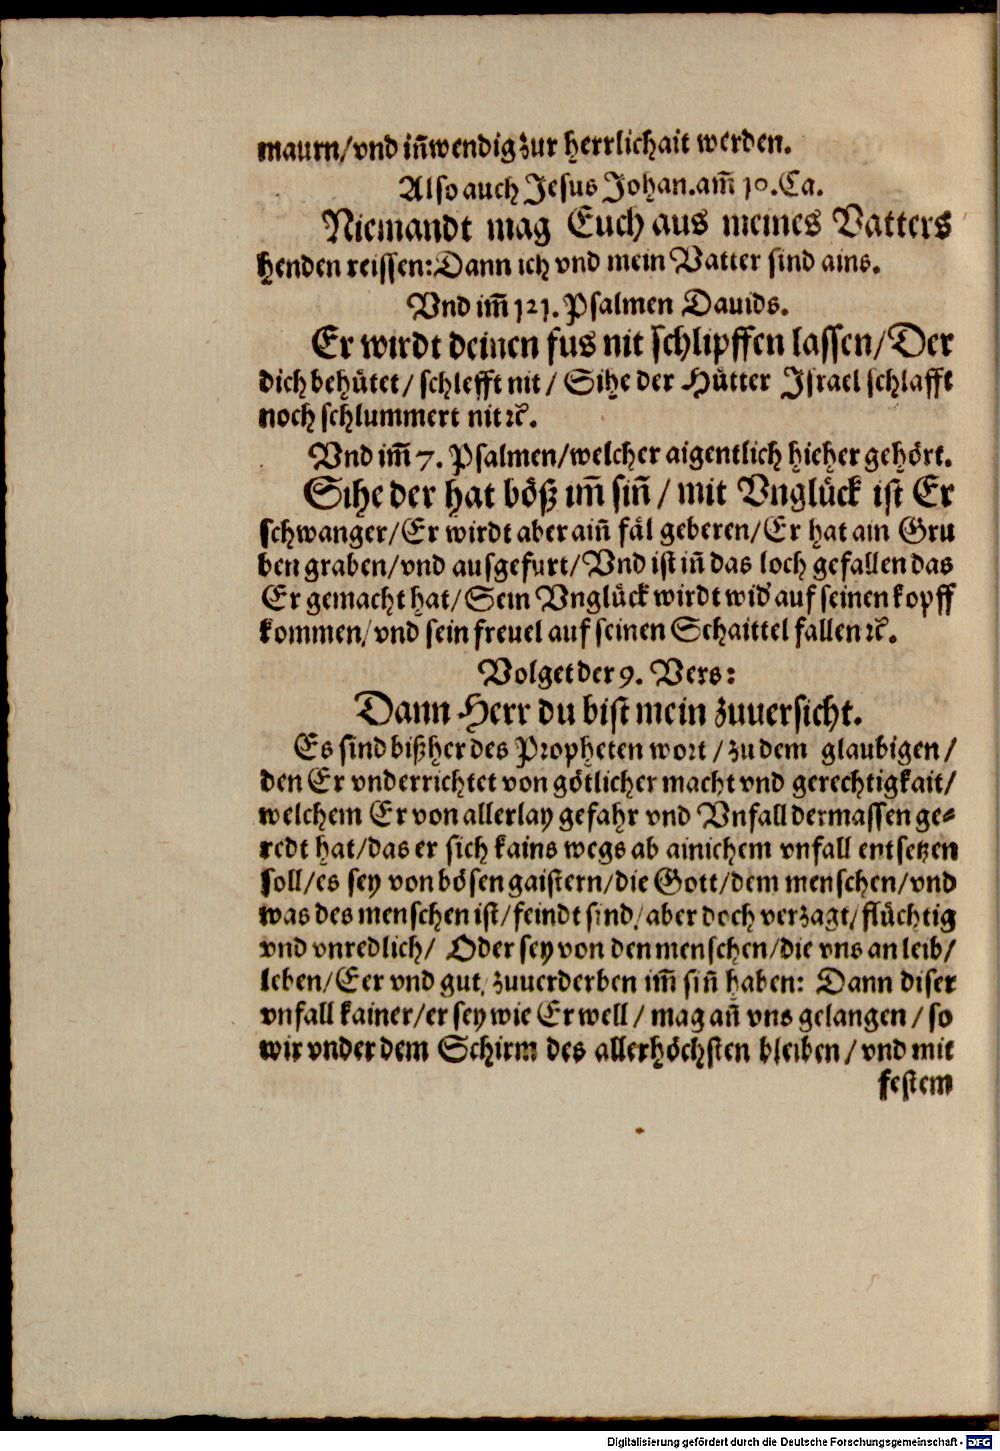 maurn/vnd iñwendig zur herrlichait werden.
Also auch Jesus Johan. am̃ 10. Ca.
Niemandt mag Euch aus meines Vatters
henden reissen: Dann ich vnd mein Vatter sind ains.
Vnd im̃ 121. Psalmen Dauids.
Er wirdt deinen fus nit schlipffen lassen/Der
dich behütet/ schlefft nit/ Sihe der Hütter Israel schlafft
noch schlummert nit ꝛc̃.
Vnd im̃ 7. Psalmen/welcher aigentlich hieher gehört.
Sihe der hat böß im̃ siñ/ mit Vnglück ist Er
schwanger/Er wirdt aber aiñ fäl geberen/Er hat ain Gru
ben graben/vnd ausgefurt/Vnd ist iñ das loch gefallen das
Er gemacht hat/Sein Vnglück wirdt wid' auf seinen kopff
kommen/vnd sein freuel auf seinen Schaittel fallen ꝛc̃.
Volget der 9. Vers:
Dann Herr du bist mein zuuersicht.
Es sind bißher des Propheten wort/zu dem glaubigen/
den Er vnderrichtet von götlicher macht vnd gerechtigkait/
welchem Er von allerlay gefahr vnd Vnfall dermassen ge-
redt hat/das er sich kains wegs ab ainichem vnfall entsetzen
soll/es sey von bösen gaistern/die Gott/dem menschen/vnd
was des menschen ist/feindt sind/aber doch verzagt/flüchtig
vnd vnredlich/ Oder sey von den menschen/die vns an leib/
leben/Eer vnd gut/zuuerderben im̃ siñ haben: Dann diser
vnfall kainer/er sey wie Er well/ mag añ vns gelangen/so
wir vnder dem Schirm des allerhöchsten bleiben/vnd mit
festem
Digitalisierung gefördert durch die Deutsche Forschungsgemeinschaft - DFG